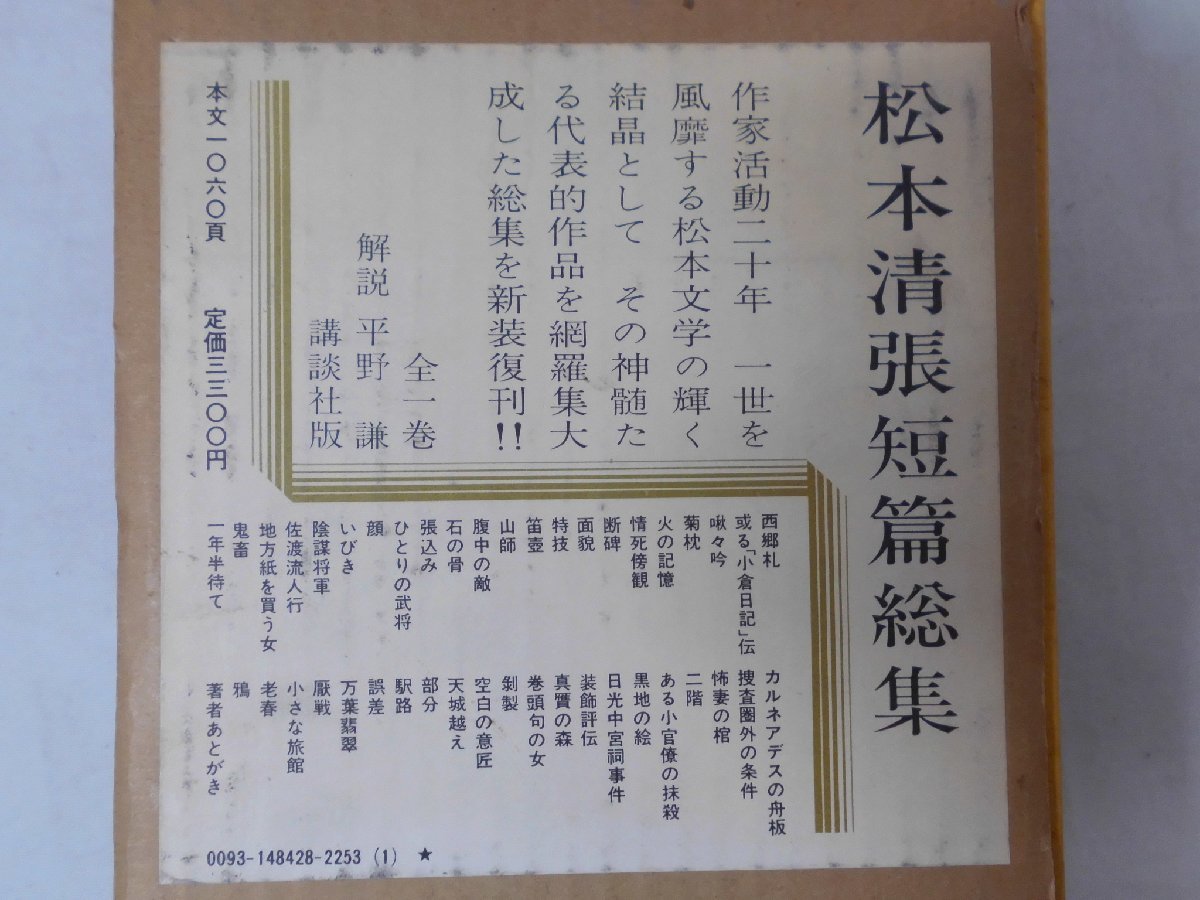 松本清張短篇総集
作家活動二十年　一世を
風靡する松本文学の輝く
結晶として　その神髄た
る代表的作品を網羅集大
成した総集を新装復刊!!
全一巻
解説 平野 謙
講談社版
本文一〇六〇頁　定価三三〇〇円
西郷札
或る「小倉日記」伝
啾々吟
菊枕
火の記憶
情死傍観
断碑
面貌
特技
笛壺
山師
腹中の敵
石の骨
張込み
ひとりの武将
顔
いびき
陰謀将軍
佐渡流人行
地方紙を買う女
鬼畜
一年半待て
カルネアデスの舟板
捜査圏外の条件
怖妻の棺
二階
ある小官僚の抹殺
黒地の絵
日光中宮祠事件
装飾評伝
真贋の森
巻頭句の女
剝製
空白の意匠
天城越え
部分
駅路
誤差
万葉翡翠
厭戦
小さな旅館
老春
鴉
著者あとがき
0093-148428-2253 (1) ★